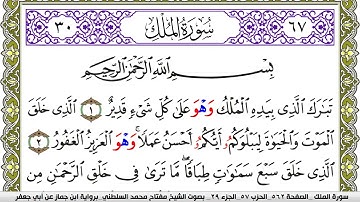 ٣٠ سُورَةُ المُلْكِ ٦٧
بِسْمِ اللَّهِ الرَّحْمَٰنِ الرَّحِيمِ
تَبَارَكَ الَّذِي بِيَدِهِ الْمُلْكُ وَهْوَ عَلَىٰ كُلِّ شَيْءٍ قَدِيرٌ ١ الَّذِي خَلَقَ
الْمَوْتَ وَالْحَيَوٰةَ لِيَبْلُوَكُمُ أَيُّكُمُ أَحْسَنُ عَمَلًا وَهْوَ الْعَزِيزُ الْغَفُورُ ٢
الَّذِي خَلَقَ سَبْعَ سَمَٰوَٰتٍ طِبَاقًا مَا تَرَىٰ فِي خَلْقِ الرَّحْمَٰنِ مِن
سورة الملك . الصفحة ٥٦٢ الحزب ٥٧ الجزء ٢٩ .. بصوت الشيخ مفتاح محمد السلطني برواية ابن جماز عن أبي جعفر